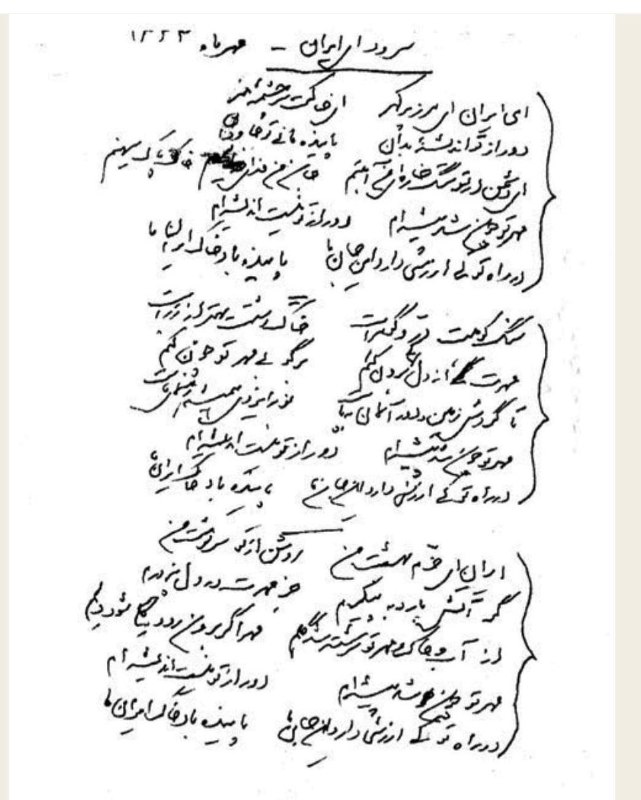 سرود ای ایران – مهرماه ۱۳۲۳
ای ایران ای مرز پرگهر ای خاکت سرچشمه هنر
دور از تو اندیشهٔ بدان پاینده مانی تو جاودان
ای دشمن ار تو سنگ خاره‌ای من آهنم جان من فدای خاک پاک میهنم
مهر تو چون شد پیشه‌ام دور از تو نیست اندیشه‌ام
در راه تو کی ارزشی دارد این جان ما پاینده باد خاک ایران ما
سنگ کوهت در و گوهر است خاک دشتت بهتر از زر است
مهرت از دل کی برون کنم برگو بی مهر تو چون کنم
تا گردش زمین و دور آسمان بپاست نور ایزدی همیشه رهنمای ماست
مهر تو چون شد پیشه‌ام دور از تو نیست اندیشه‌ام
در راه تو کی ارزشی دارد این جان ما پاینده باد خاک ایران ما
ایران ای خرم بهشت من روشن از تو سرنوشت من
گر آتش بارد به پیکرم جز مهرت در دل نپرورم
از آب و خاک و مهر تو سرشته شد گلم مهر اگر برون رود شود دلم
مهر تو چون شد پیشه‌ام دور از تو نیست اندیشه‌ام
در راه تو کی ارزشی دارد این جان ما پاینده باد خاک ایران ما